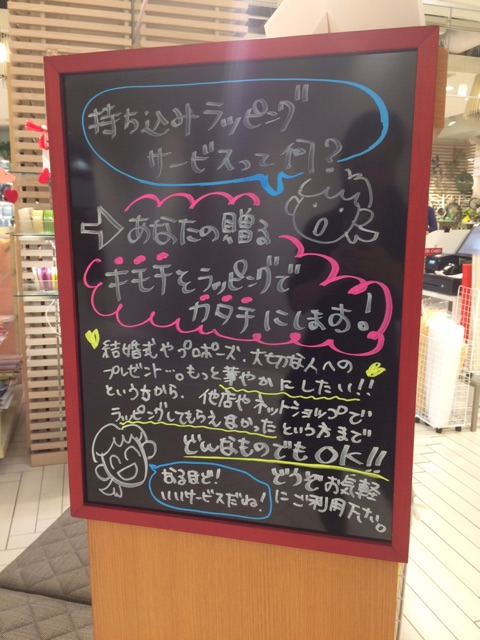 持ち込みラッピング
サービスって何?
あなたの贈る
キモチをラッピングで
カタチにします!
結婚式やプロポーズ、大切な人への
プレゼント…。もっと華やかにしたい!!
という方から、他店やネットショップで
ラッピングしてもらえなかったという方まで
どんなものでもOK!!
どうぞお気軽
にご利用下さい。
なるほど!
いいサービスだね!